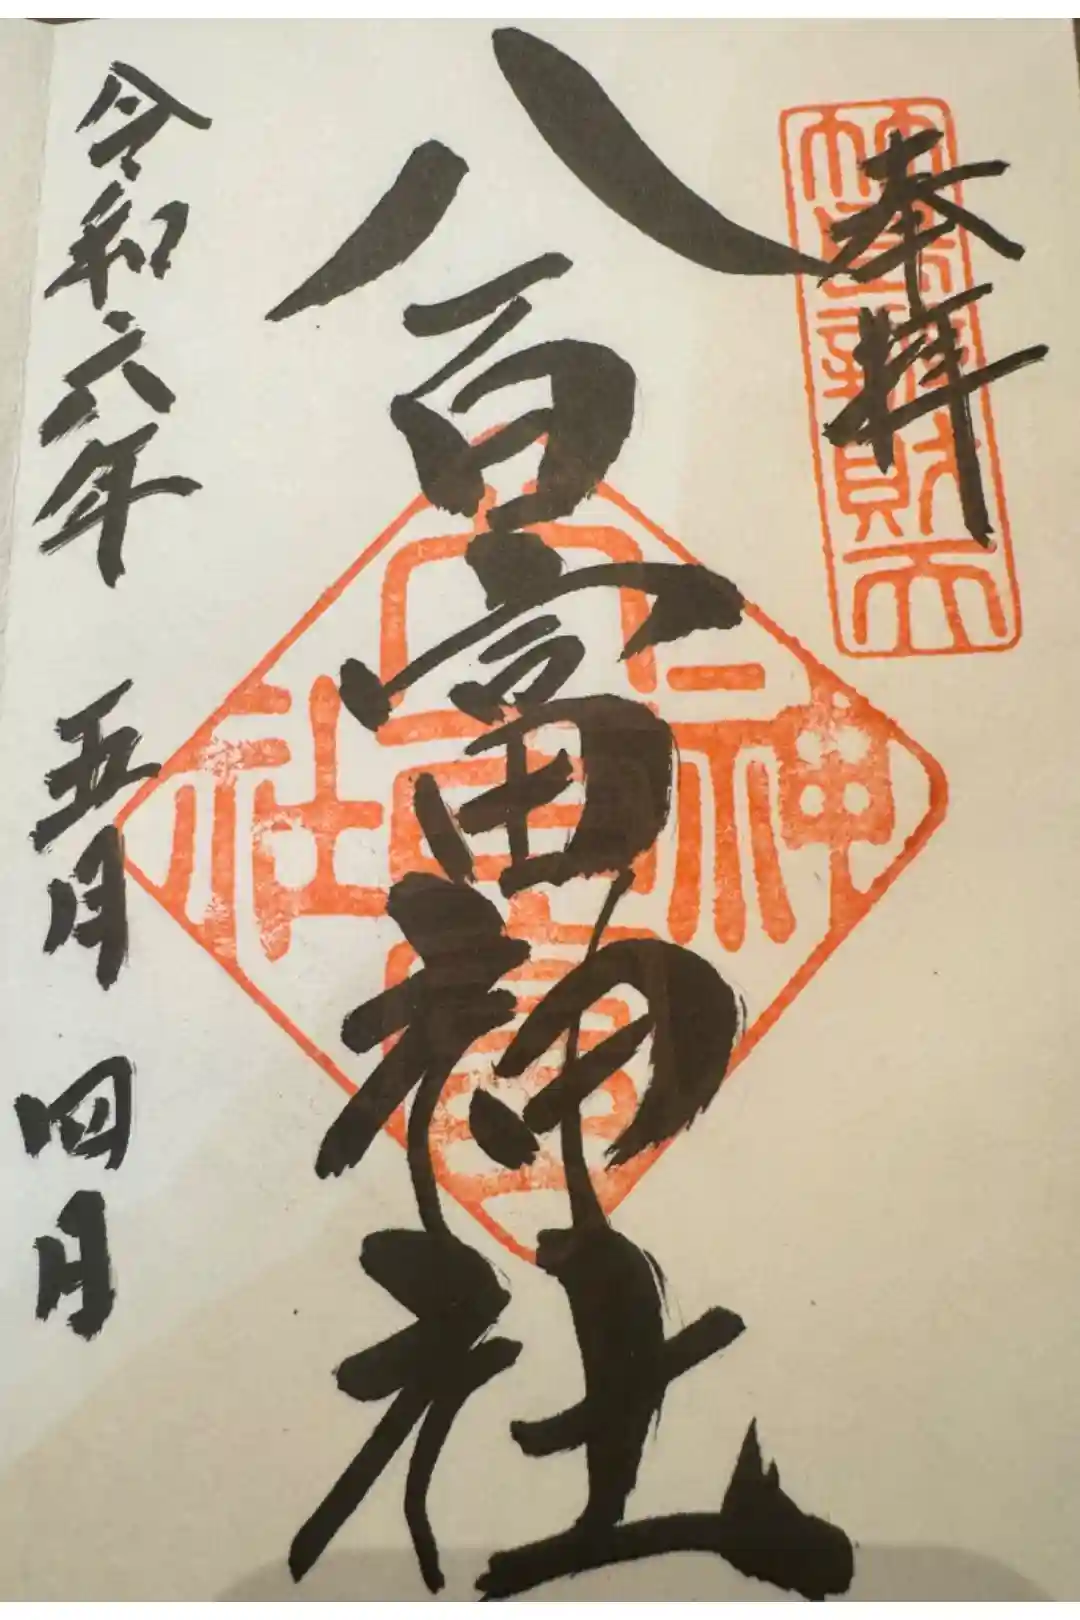 奉拝
竹島辨財天
八百富神社
八百富神社
令和六年 五月 四日